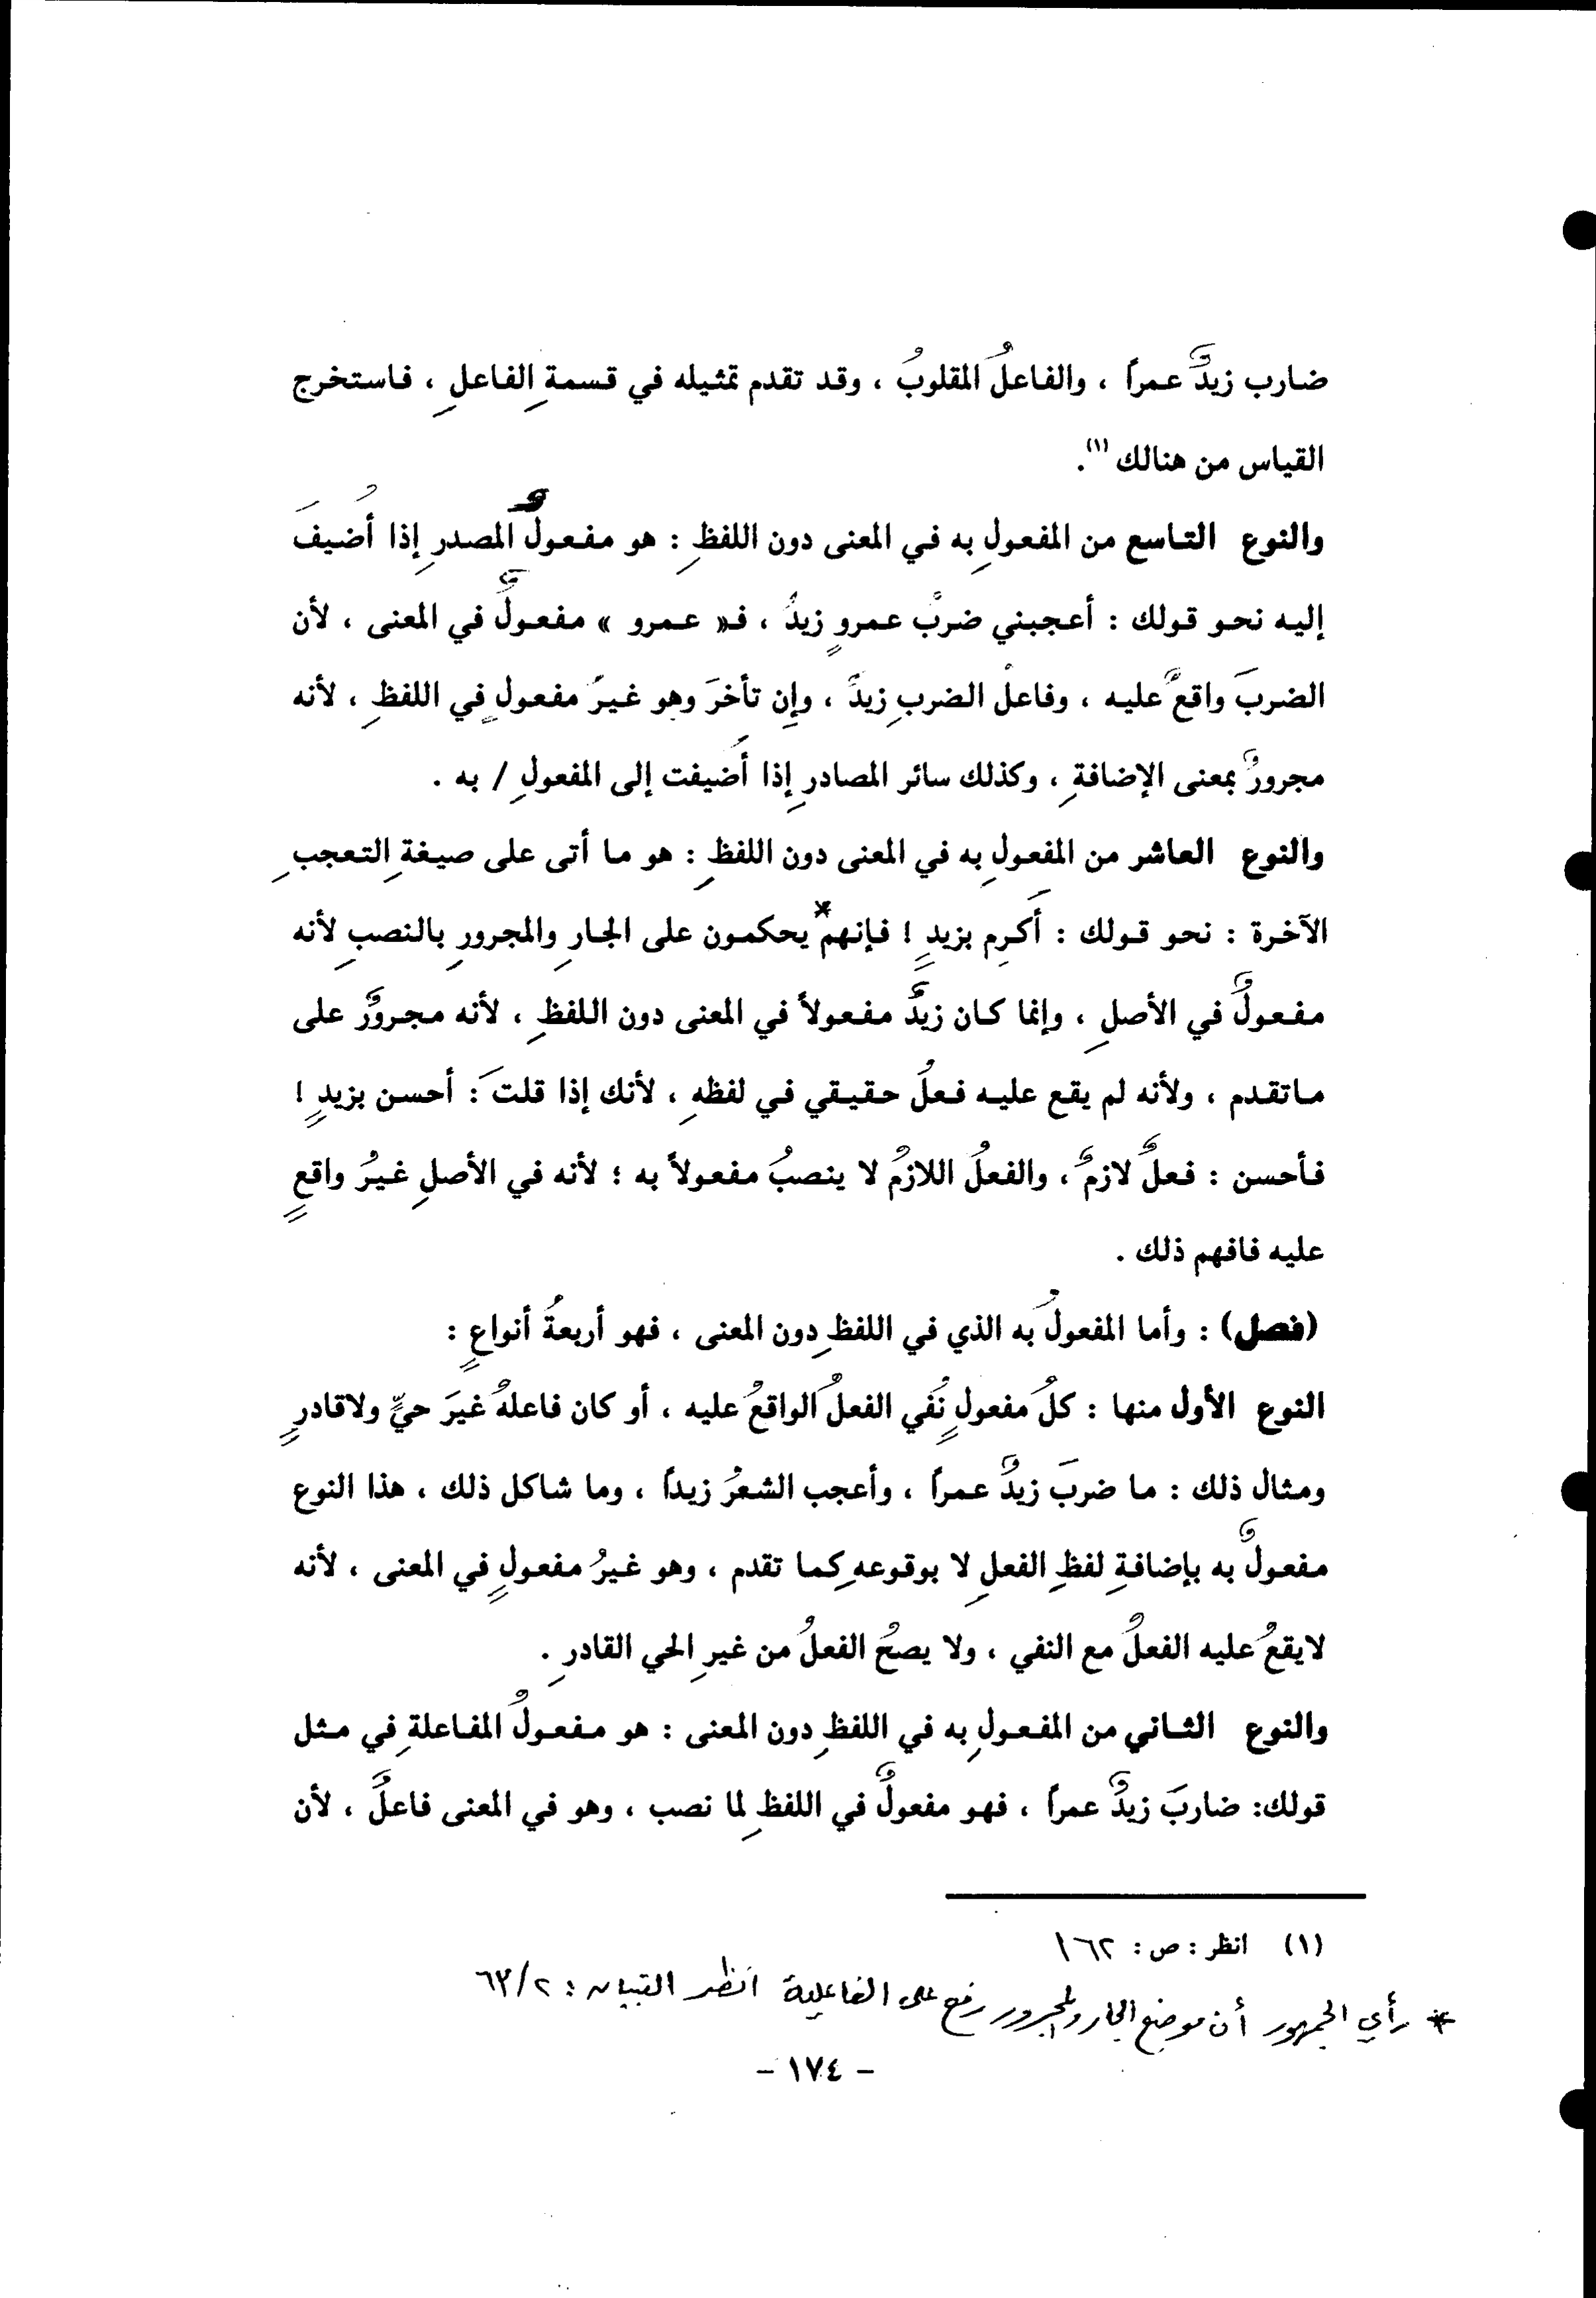 ضارب زيدٌ عمراً ، والفاعلُ المقلوبُ ، وقد تقدم تمثيله في قسمةِ الفاعلِ ، فاستخرج
القياس من هنالك (١).
والنوع التاسع من المفعولِ به في المعنى دون اللفظِ : هو مفعولُ المصدرِ إذا أُضيفَ
إليه نحو قولك : أعجبني ضربُ عمروٍ زيدٌ ، فـ« عمرو » مفعولٌ في المعنى ، لأن
الضربَ واقعٌ عليه ، وفاعلُ الضربِ زيدٌ ، وإن تأخرَ وهو غيرُ مفعولٍ في اللفظِ ، لأنه
مجرورٌ بمعنى الإضافةِ ، وكذلك سائر المصادرِ إذا أُضيفت إلى المفعولِ / به .
والنوع العاشر من المفعولِ به في المعنى دون اللفظِ : هو ما أتى على صيغةِ التعجبِ
الآخرة : نحو قولك : أَكرِم بزيدٍ ! فإنهم* يحكمون على الجارِ والمجرورِ بالنصبِ لأنه
مفعولٌ في الأصلِ ، وإنما كان زيدٌ مفعولاً في المعنى دون اللفظِ ، لأنه مجرورٌ على
ماتقدم ، ولأنه لم يقع عليه فعلُ حقيقي في لفظهِ ، لأنك إذا قلتَ : أحسن بزيدٍ !
فأحسن : فعلٌ لازمٌ ، والفعلُ اللازمُ لا ينصبُ مفعولاً به ؛ لأنه في الأصلِ غيرُ واقعٍ
عليه فافهم ذلك .
(فصل) : وأما المفعولُ به الذي في اللفظِ دون المعنى ، فهو أربعةُ أنواعٍ :
النوع الأول منها : كلُ مفعولٍ نُفي الفعلُ الواقعُ عليه ، أو كان فاعلهُ غيرَ حيٍّ ولاقادرٍ
ومثال ذلك : ما ضربَ زيدٌ عمراً ، وأعجب الشعرُ زيداً ، وما شاكل ذلك ، هذا النوع
مفعولٌ به بإضافةِ لفظِ الفعلِ لا بوقوعهِ كما تقدم ، وهو غيرُ مفعولٍ في المعنى ، لأنه
لايقعُ عليه الفعلُ مع النفي ، ولا يصحُ الفعلُ من غيرِ الحي القادرِ .
والنوع الثاني من المفعولِ به في اللفظِ دون المعنى : هو مفعولُ المفاعلةِ في مثل
قولك: ضاربَ زيدٌ عمراً ، فهو مفعولٌ في اللفظِ لما نصب ، وهو في المعنى فاعلٌ ، لأن
(١) انظر : ص : ١٦٢
* رأي الجمهور أن موضع الجار والمجرور رفع على الفاعلية انظر التبيان : ٢/ ٦٣
- ١٧٤ -